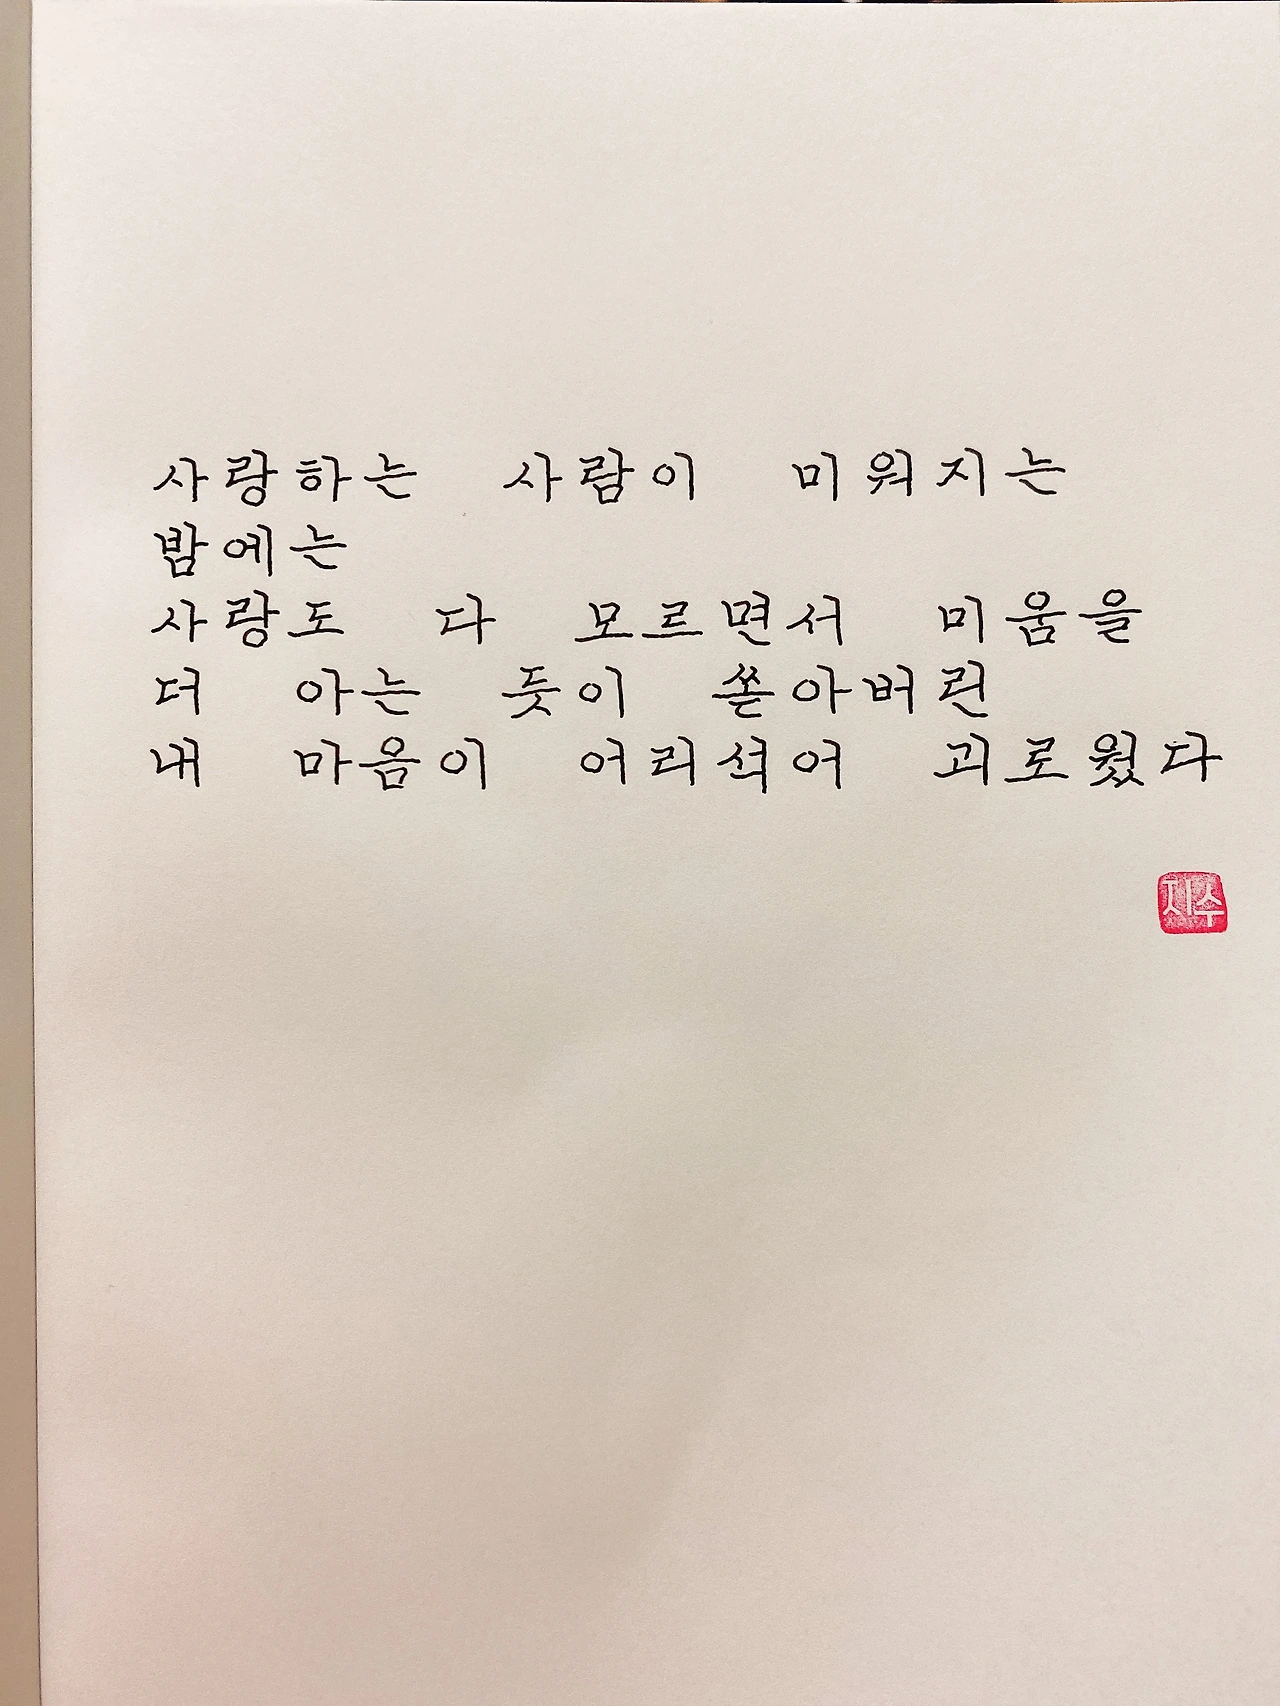 사랑하는 사람이 미워지는
밤에는
사랑도 다 모르면서 미움을
더 아는 듯이 쏟아버린
내 마음이 어리석어 괴로웠다
지수